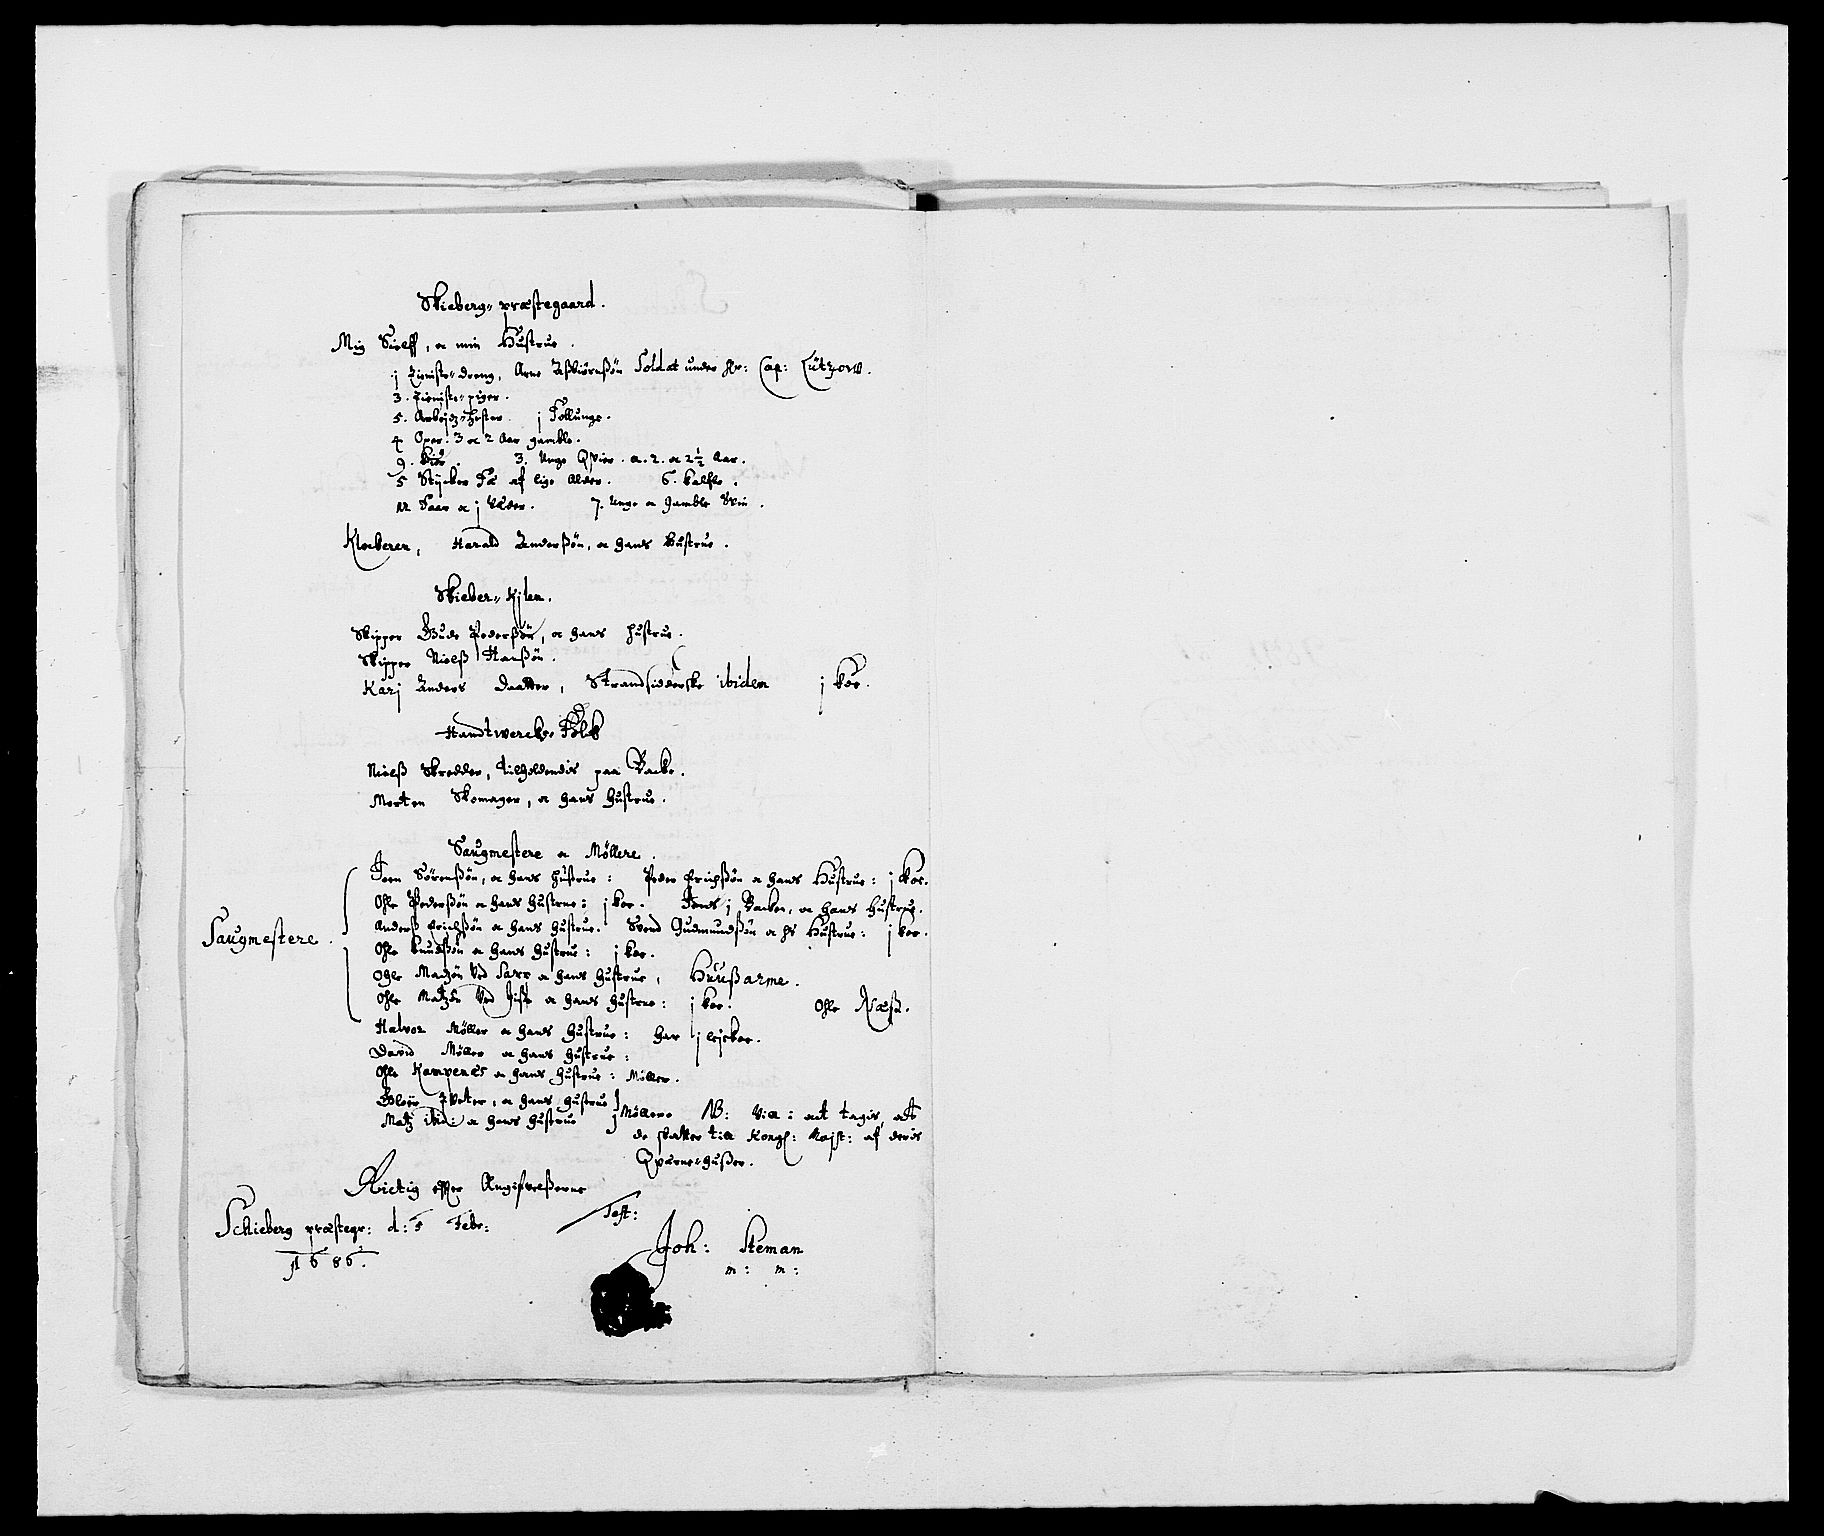 Skieberg præstegaard.
Mig Sielff, oc min Hustrue.
j Tieniste-dreng, Arne Aßbiörnßön Soldat under Hr: Cap: Lützow.
3. Tieniste-piger.
5. Arbejdz-Hester. j Follunge.
4 Oxer. 3 oc 2 Aar gamble.
9. Kiör. 3. Unge Qvier. a. 2. oc 2½ Aar.
5 Stÿcker Fæ af lige Alder. 6. Kalfve.
12 Faar oc j Væder. 7. Unge oc Gamble Svin.
Klockeren, Harald Anderßön, oc hans Hustrue.
Skieber-Kilen.
Skipper Gude Pederßön, oc hans Hustrue.
Skipper Nielß Hanßön.
Karj Anders Daatter, Strandsidderske ibidem j Koe.
Handtwercks-Folck
Nielß Skredder, tilholdendis paa Backe.
Morten Skomager, oc hans Hustrue.
Saugmestere oc Møllere.
Joen Sørenßön, oc hans Hustrue: Peder Erichßön oc hans Hustrue: j Koe.
Ohle Pederßön oc hans Hustrue: j Koe. Jens j Backen, oc hans Hustrue.
Anderß Erichßön oc hans Hustrue. Svend Gudmundßön oc hs Hustrue: j Koe.
Saugmestere.
Ohle Knudßön oc hans Hustrue: j Koe.
Ohle Madzön Ved oc hans Hustrue, Huußarme.
Ohle Matzön Ved oc hans Hustrue: j Koe. Ohle Næß.
Halvor Møller oc hans Hustrue: har j lejekoe.
David Møller oc hans Hustrue:
Ohle Kampenes oc hans Hustrue: Møller.
oc hans Hustrue
Matz ibid: oc hans Hustrue Møllere NB: Vill: act tagis, at
de skatter till Kongl: Majst: af deris
Qværne-Hußer.
Rictig efter Angifvelßerne
Schieberg præstegr: d: 5 Febr: Test:
1686. Joh: Steman
m: m: